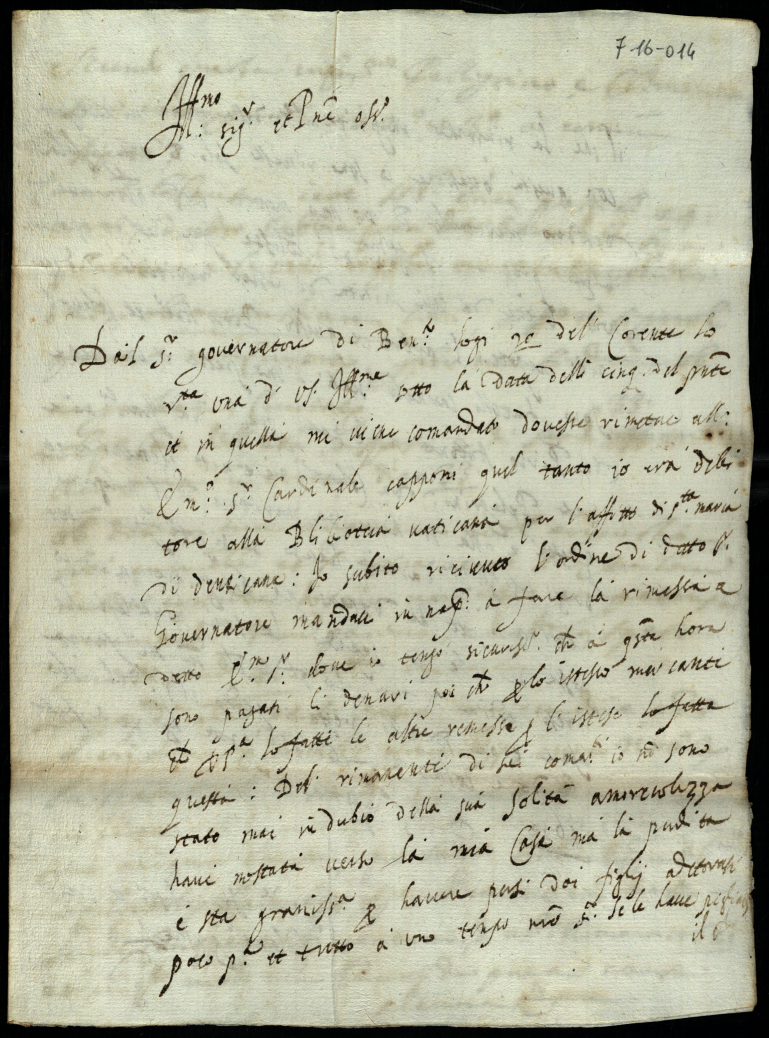 7 16-014
Ill.mo sig.r et Pne oss.o
Dal s.r governatore di Ben.to hogi del Corente ho
r.ta una di VS. Ill.ma sotto la data delli cinq. del pnte
et in quella mi viene comandato dovesse rimetere all:
Em.o s.r Cardinale capponi quel tanto io era debi
tore alla Bliblioteca vaticana per l'affitto di s.ta maria
di : Io subito riceuuto l'ordine di detto s.r
Governatore mandai in nap: a fare la rimessa a
detto E.mo s.r dove io tengo sicuriss.o ch a qsta hora
sono pagati li denari poi ch p lo istesso mercanti
ch ho fatti le altre remesse p l'istesso ho fatta
questa: Del rimanenti di sei coman.i io nō sono
stato mai in dubio della sua solita amorevolezza
have mostata verso la mia Casa ma la perdita
è sta graviss.a p havere persi doi figlij
poco p.a et tutto a uno tempo nro s.r se le have pigliati
il